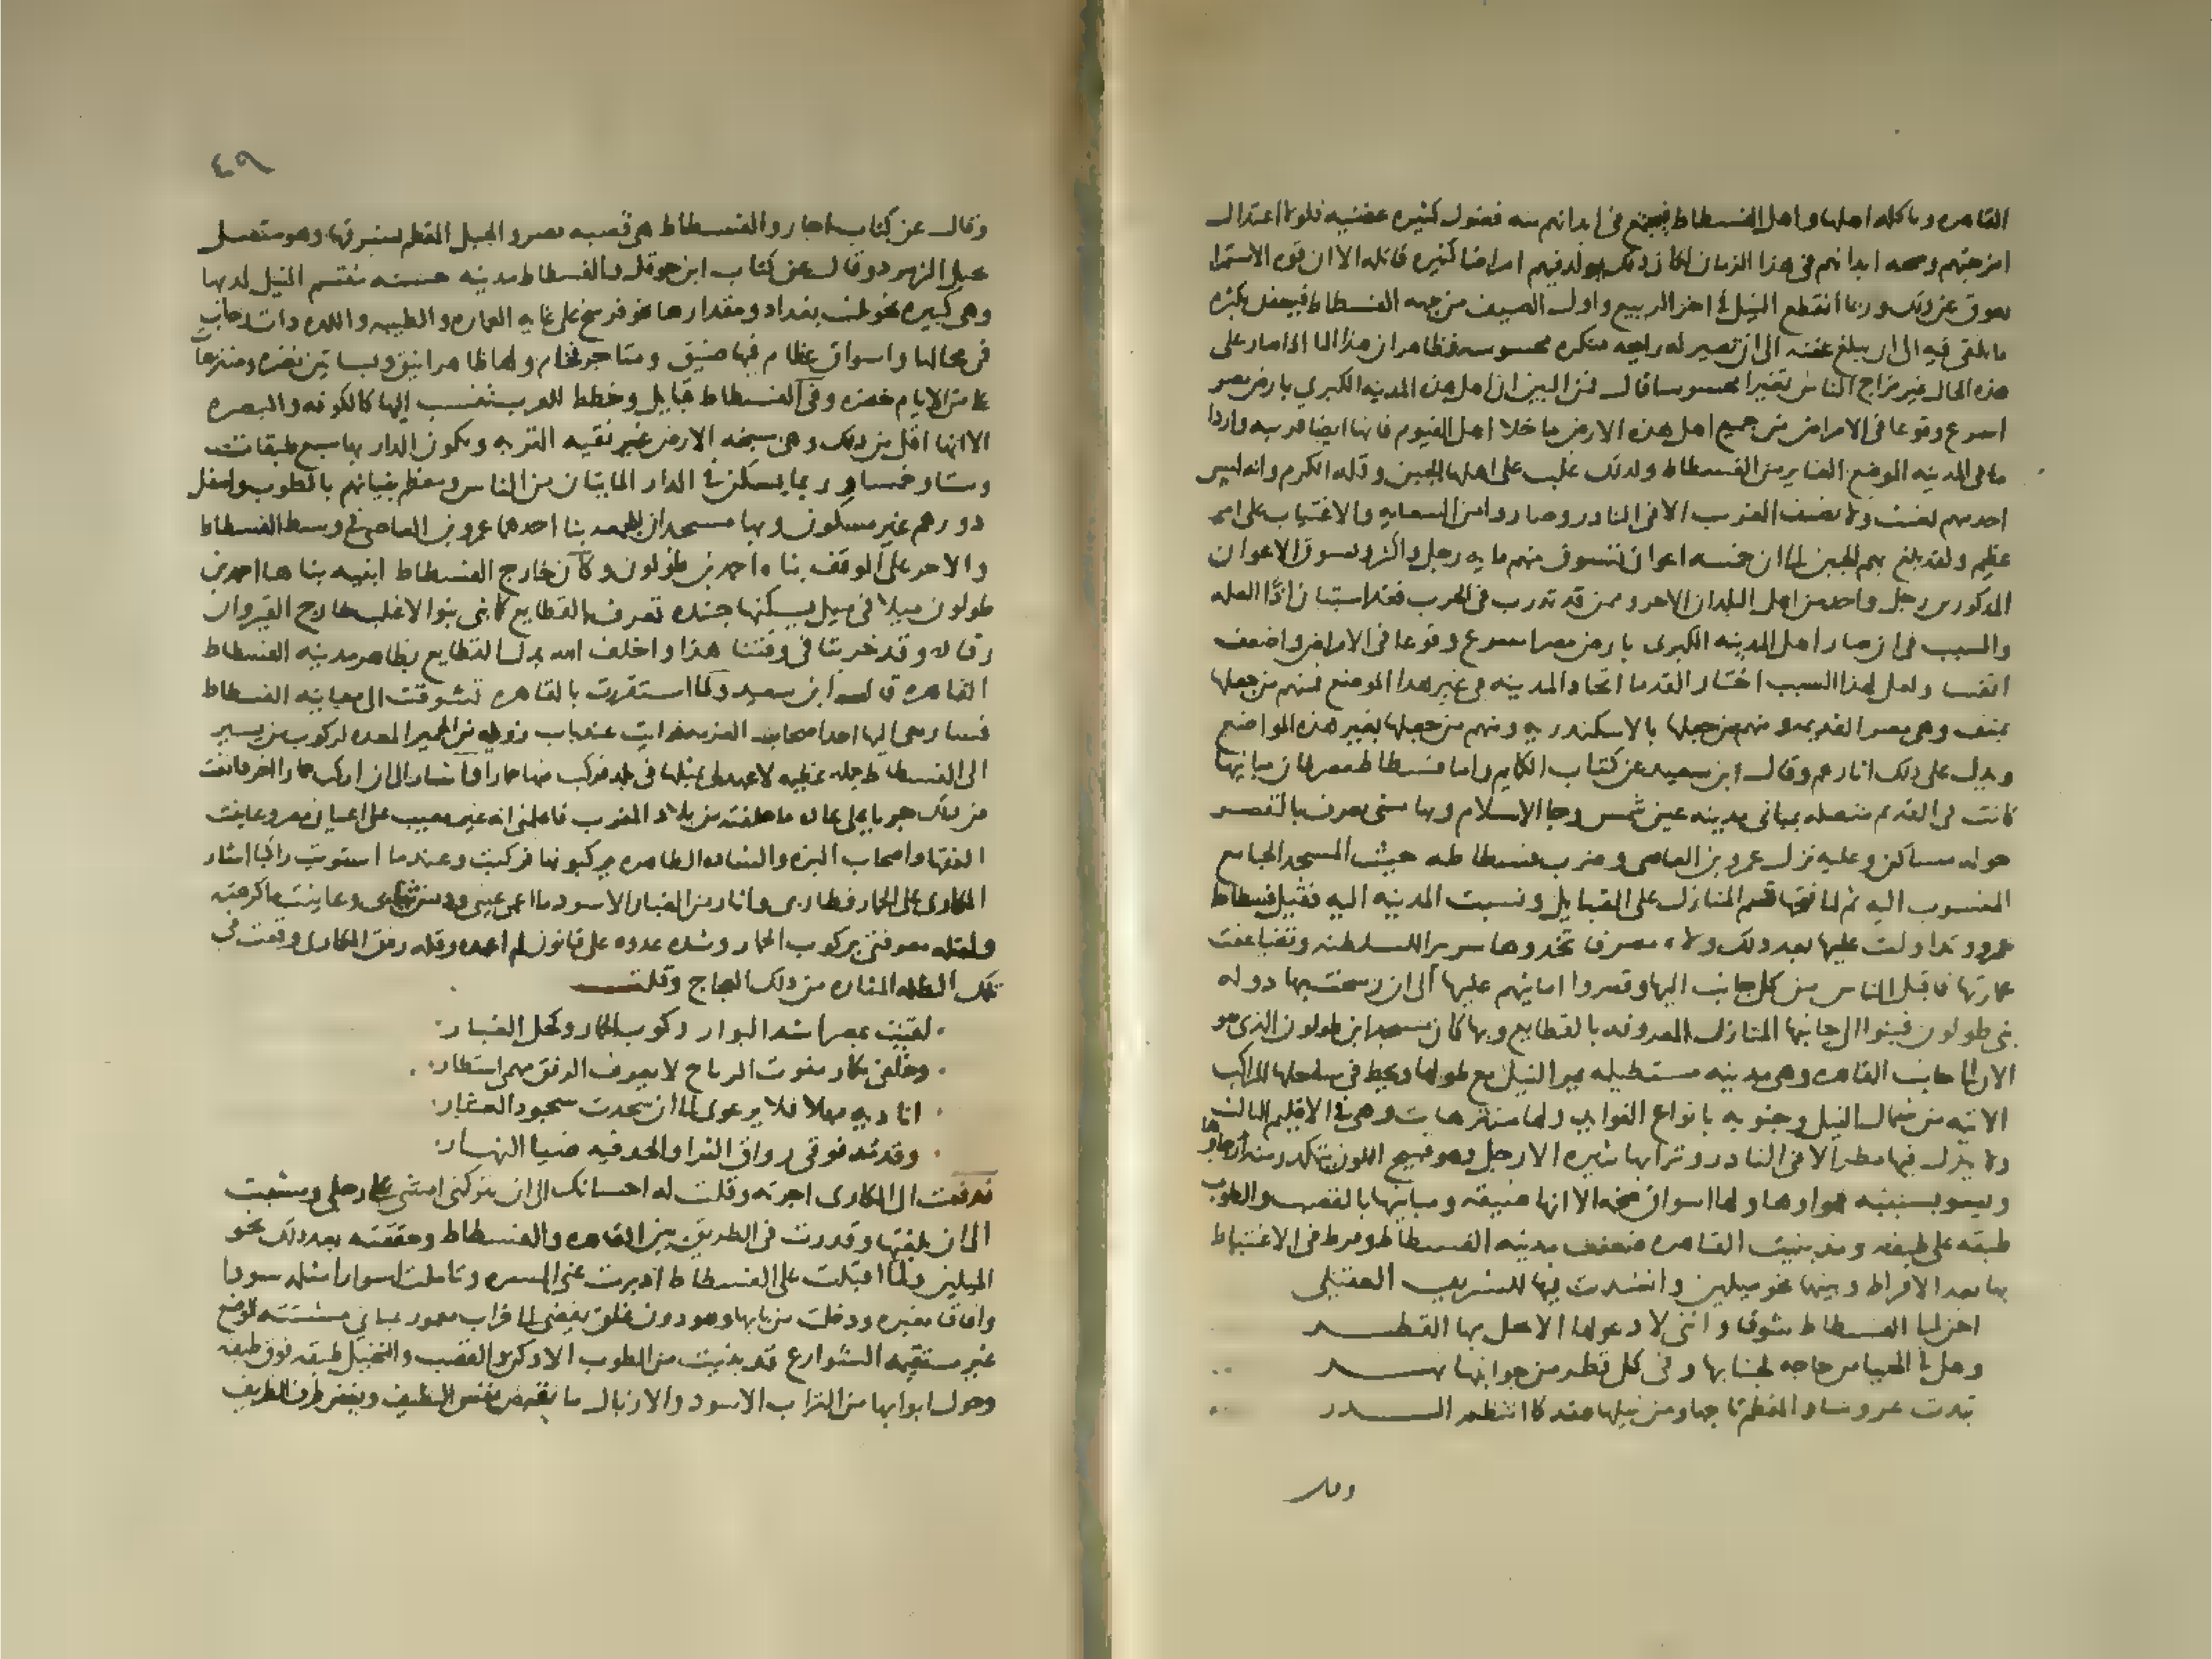 القاهره وياكله اهلها واهل الفسطاط فيجتمع في ابدانهم منه فضول كثيره عفنيه فلولا اعتدال
امزجتهم وصحه ابدانهم في هذا الزمان لكان ذلك يولد فيهم امراضا كثيره قاتله الا ان قوه الاستمرا
تعوق عن ذلك وربما انقطع النيل في اخر الربيع واول الصيف من جهه الفسطاط فيعفن بكثره
ما يلقى فيه الى ان يبلغ عفنه الى ان تصير له رايحه منكره محسوسه وظاهر ان هذا الما اذا صار على
هذه الحال غير مزاج الناس تغيرا محسوسا قال فمن البين ان اهل هذه المدينه الكبرى بارض مصر
اسرع وقوعا في الامراض من جميع اهل هذه الارض ما خلا اهل الفيوم فانها ايضا قريبه واردا
ما في المدينه الموضع الغاير من الفسطاط ولذلك غلب على اهلها الجبن وقله الكرم وانه ليس
احد منهم يغيث ولا يضيف الغريب الا في النادر وصاروا من السعايه والاغتياب على امر
عظيم ولقد بلغ بهم الجبن الى ان خمسه اعوان تسوق منهم مايه رجل واكثر ويسوق الاعوان
المذكورين رجل واحد من اهل البلدان الاخر وممن قد تدرب في الحرب فقد استبان اذا العله
والسبب في ان صار اهل المدينه الكبرى بارض مصر اسرع وقوعا في الامراض واضعف
انفسا ولعل لهذا السبب اختار القدما اتخاذ المدينه في غير هذا الموضع فمنهم من جعلها
بمنف وهي مصر القديمه ومنهم من جعلها بالاسكندريه ومنهم من جعلها بغير هذه المواضع
ويدل على ذلك اثارهم وقال ابن سعيد عن كتاب الكمايم واما فسطاط مصر فان مبانيها
كانت في القديم متصله بمباني مدينه عين شمس وجا الاسلام وبها مبنى يعرف بالقصر
حوله مساكن وعليه نزل عمرو بن العاصي وضرب فسطاطه حيث المسجد الجامع
المنسوب اليه ثم لما فتحها قسم المنازل على القبايل ونسبت المدينه اليه فقيل فسطاط
عمرو وتداولت عليها بعد ذلك ولاه مصر فاتخذوها سرير السلطنه وتضاعفت
عمارتها فاقبل الناس من كل جانب اليها وقصروا امانيهم عليها الى ان رسخت بها دوله
بني طولون فبنوا الى جانبها المنازل المعروفه بالقطايع وبها كان مسجد ابن طولون الذي هو
الان الى جانب القاهره وهي مدينه مستطيله يمر النيل مع طولها ويحط في ساحلها المراكب
الاتيه من شمال النيل وجنوبه بانواع الفوايد ولها منتزهات وهي في الاقليم الثالث
ولا ينزل فيها مطر الا في النادر وترابها تثيره الارجل وهو قبيح اللون تتكدر منه ارجاوها
ويسو بسببه هواوها ولها اسواق ضخمه الا انها ضيقه ومبانيها بالقصب والطوب
طبقه على طبقه ومذ بنيت القاهره ضعفت مدينه الفسطاط وفرط في الاغتباط
بها بعد الافراط وبينهما نحو ميلين وانشدت فيها للشريف العقيلي
احن الى الفسطاط شوقا وانني لادعو لها الا يحل بها القطر
وهل في الحيا من حاجه لجنابها وفي كل قطر من جوانبها نهر
تبدت عروسا والمقطم تاجها ومن نيلها عقد كما انتظم الدر
وقال
٤٩
وقال عن كتاب اجار والفسطاط هي قصبه مصر والجبل المقطم بشرقها وهو متصل
بجبل الزمرد وقال عن كتاب ابن حوقل والفسطاط مدينه حسنه ينقسم النيل لديها
وهي كبيره نحو ثلث بغداد ومقدارها نحو فرسخ على غايه العماره والطيبه واللذه ذات رحاب
في محالها واسواق عظام فيها ضيق ومتاجر فخام ولها ظاهر انيق وبساتين نضره ومنتزهات
على مر الايام خضره وفي الفسطاط قبايل وخطط للعرب تنسب اليها كالكوفه والبصره
الا انها اقل من ذلك وهي سبخه الارض غير نقيه التربه وتكون الدار بها سبع طبقات
وستا وخمسا وربما يسكن في الدار المايتان من الناس ومعظم بنيانهم بالطوب واسفل
دورهم غير مسكون وبها مسجدان للجمعه بنا احدهما عمرو بن العاصي في وسط الفسطاط
والاخر على الموقف بناه احمد بن طولون وكان خارج الفسطاط ابنيه بناها احمد بن
طولون ميلا في ميل يسكنها جنده تعرف بالقطايع كما بنى بنو الاغلب خارج القيروان
رقاده وقد خربتا في وقتنا هذا واخلف الله بدل القطايع بظاهر مدينه الفسطاط
القاهره قال ابن سعيد ولما استقررت بالقاهره تشوقت الى معاينه الفسطاط
فسار معي اليها احد اصحاب العزمه فرايت عند باب زويله من الحمير المعده لركوب من يسير
الى الفسطاط جمله عظيمه لا عهد لي بمثلها في بلد فركب منها حمارا واشار الى ان اركب حمارا اخر فانفت
من ذلك جريا على عاده ما خلفته من بلاد المغرب فاعلمني انه غير معيب على اعيان مصر وعاينت
الفقها واصحاب البزه والشاره الظاهره يركبونها فركبت وعندما استويت راكبا اشار
المكاري على الحمار فطار بي واثار من الغبار الاسود ما اعمى عيني ودنس ثيابي وعاينت ما كرهته
ولقله معرفتي بركوب الحمار وشده عدوه على قانون لم اعهده وقله رفق المكاري وقعت في
تلك الظلمه المثاره من ذلك العجاج وقلت
لقيت بمصر اشد البوار ركوب الحمار وكحل الغبار
وخلفي مكار يفوت الرياح لا يعرف الرفق مهما استطار
اناديه مهلا فلا يرعوي الى ان سجدت سجود العثار
وقد مد فوقي رواق الثرا والحد فيه ضيا النهار
فدفعت الى المكاري اجرته وقلت له احسانك الى ان تتركني امشي على رجلي ومشيت
الى ان بلغتها وقدرت في الطريق بين القاهره والفسطاط وحققته بعد ذلك نحو
الميلين ولما اقبلت على الفسطاط ادبرت عني المسره وتاملت اسوارا مثلمه سودا
وافاقا مغبره ودخلت من بابها وهو دون غلق يفضي الى خراب معمور بمباني مشتته الوضع
غير مستقيمه الشوارع قد بنيت من الطوب الادكن والقصب والنخيل طبقه فوق طبقه
وحول ابوابها من التراب الاسود والازبال ما يقبض نفس النظيف ويغض طرف الظريف